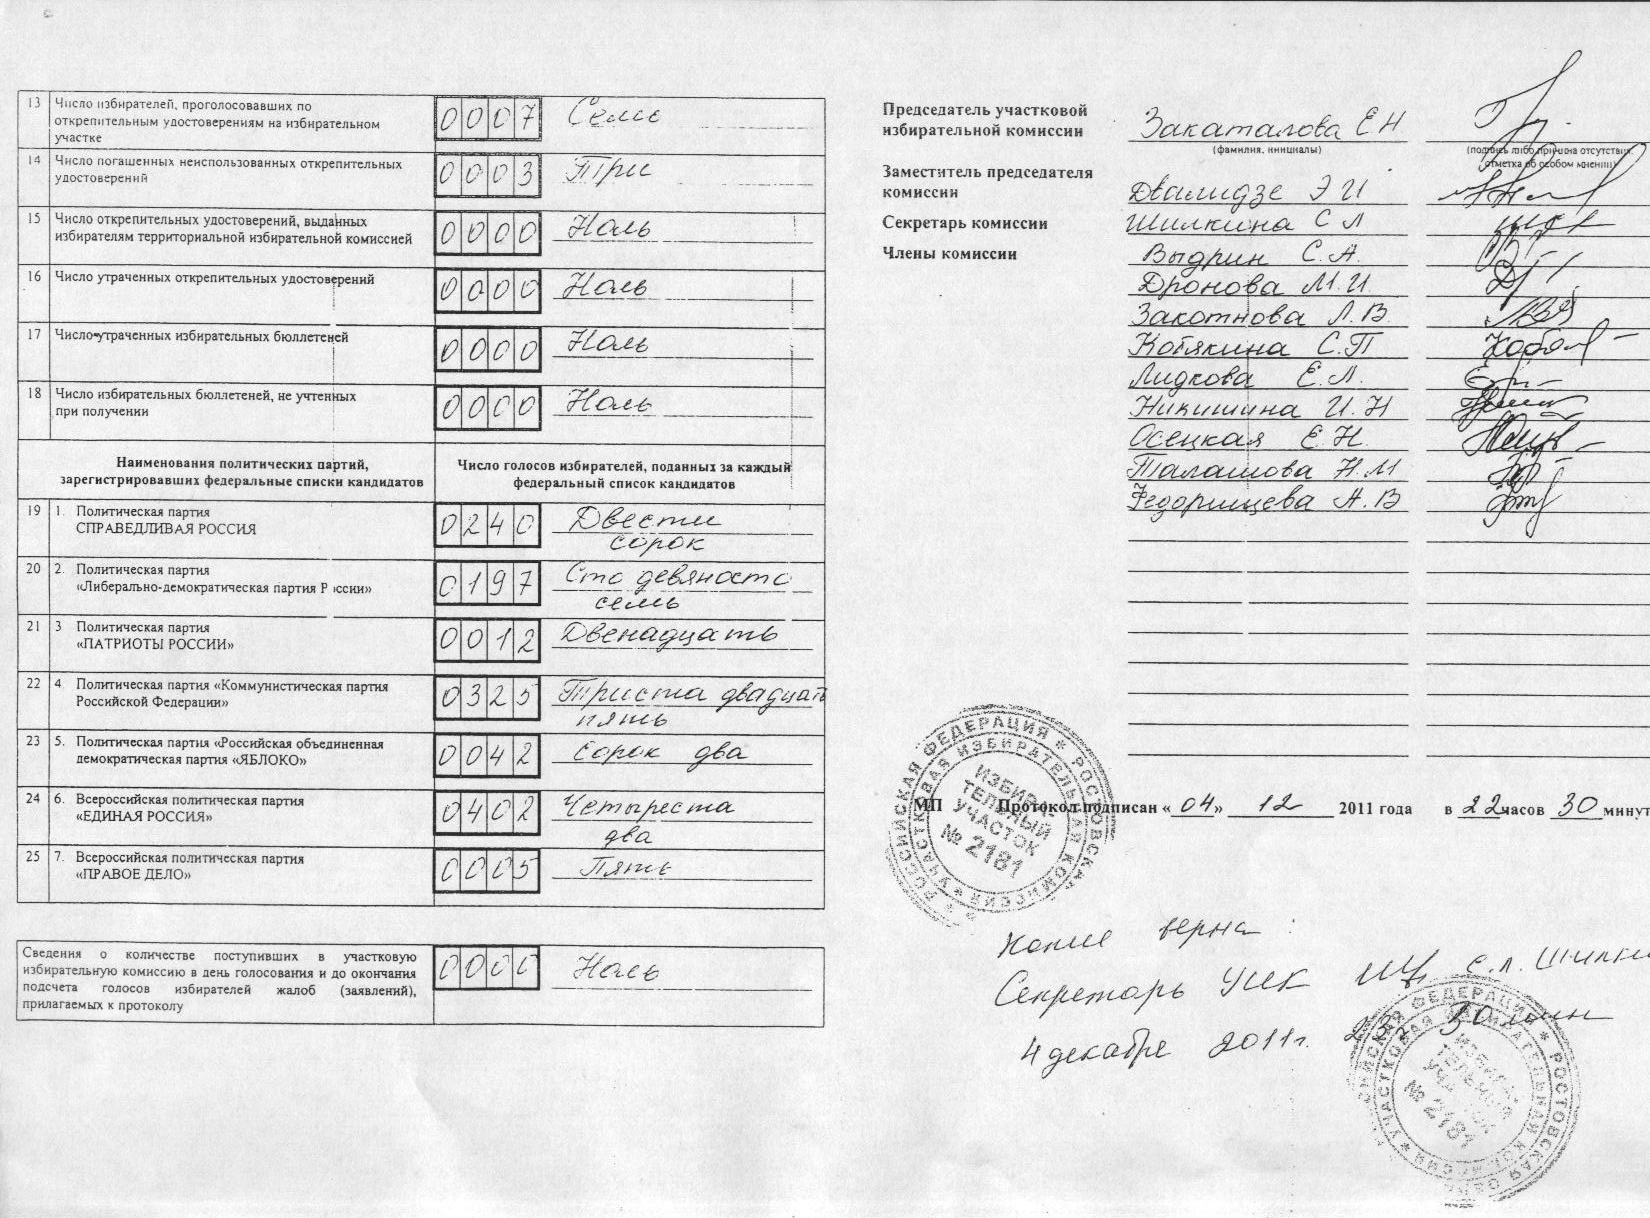 13 Число избирателей, проголосовавших по
открепительным удостоверениям на избирательном
участке
0007 Семь
14 Число погашенных неиспользованных открепительных
удостоверений
0003 Три
15 Число открепительных удостоверений, выданных
избирателям территориальной избирательной комиссией
0000 Ноль
16 Число утраченных открепительных удостоверений
0000 Ноль
17 Число утраченных избирательных бюллетеней
0000 Ноль
18 Число избирательных бюллетеней, не учтенных
при получении
0000 Ноль
Наименования политических партий,
зарегистрировавших федеральные списки кандидатов
Число голосов избирателей, поданных за каждый
федеральный список кандидатов
19 1. Политическая партия
СПРАВЕДЛИВАЯ РОССИЯ
0240 Двести
сорок
20 2. Политическая партия
«Либерально-демократическая партия Р ссии»
0197 Сто девяносто
семь
21 3 Политическая партия
«ПАТРИОТЫ РОССИИ»
0012 Двенадцать
22 4. Политическая партия «Коммунистическая партия
Российской Федерации»
0325 Триста двадцать
пять
23 5. Политическая партия «Российская объединенная
демократическая партия «ЯБЛОКО»
0042 Сорок два
24 6. Всероссийская политическая партия
«ЕДИНАЯ РОССИЯ»
0402 Четыреста
два
25 7. Всероссийская политическая партия
«ПРАВОЕ ДЕЛО»
0005 Пять
Сведения о количестве поступивших в участковую
избирательную комиссию в день голосования и до окончания
подсчета голосов избирателей жалоб (заявлений),
прилагаемых к протоколу
0000 Ноль
Председатель участковой
избирательной комиссии
Закаталова Е Н
(фамилия, инициалы)
(подпись либо причина отсутствия,
отметка об особом мнении)
Заместитель председателя
комиссии
Двалидзе Э И
Секретарь комиссии Шилкина С Л
Члены комиссии Выдрин С. А.
Дронова М. И.
Закотнова Л. В.
Котякина С. П
Лидкова Е. Л.
Никишина И. Н
Осецкая Е. Н.
Талашова Н. М
Федорищева А. В
МП Протокол подписан «04» 12 2011 года в 22 часов 30 минут
РОССИЙСКАЯ ФЕДЕРАЦИЯ * РОСТОВСКАЯ
УЧАСТКОВАЯ ИЗБИРАТЕЛЬНАЯ КОМИССИЯ
ИЗБИРА-
ТЕЛЬНЫЙ
УЧАСТОК
№ 2181
Копия верна:
Секретарь УИК С. Л. Шилкина
4 декабре 2011г. 23ч 30 мин
ФЕДЕРАЦИЯ * РОСТОВСКАЯ
УЧАСТКОВАЯ ИЗБИРАТЕЛЬНАЯ КОМИССИЯ
№ 2181